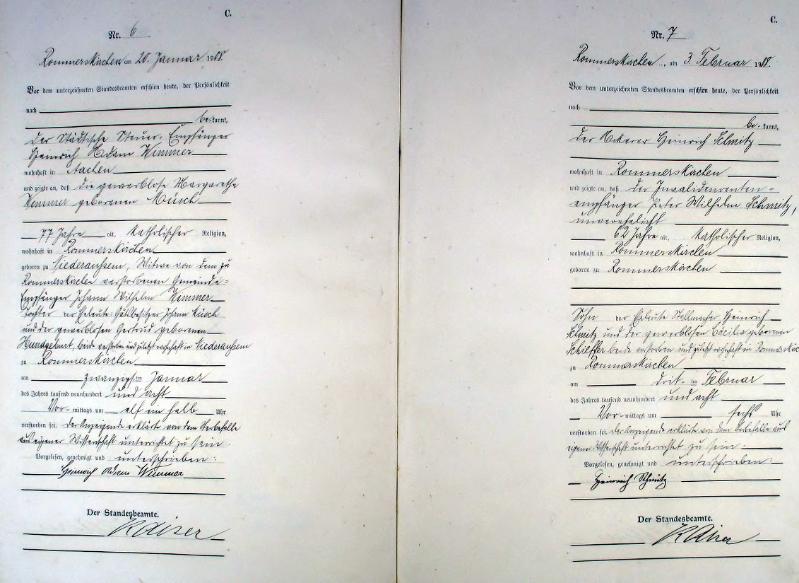 C.
Nr. 6
Rommerskirchen am 20. Januar 1908.
Vor dem unterzeichneten Standesbeamten erschien heute, der Persönlichkeit
nach
be kannt,
der Städtische Steuer-Empfänger
Heinrich Adam Wimmer
wohnhaft in Aachen
und zeigte an, daß die gewerblose Margarethe
Wimmer geborenen Müsch
77 Jahre alt, katholischer Religion,
wohnhaft in Rommerskirchen
geboren zu Niederaussem, Witwe von dem zu
Rommerskirchen verstorbenen Gemeinde-
Empfänger Johann Wilhelm Wimmer
Tochter der Eheleute Gutsbesitzer Johann Müsch
und der gewerblosen Gertrud geborenen
beide verstorben und zuletzt wohnhaft in Niederaussem
zu Rommerskirchen
am zwanzigsten Januar
des Jahres tausend neunhundert und acht
Vor mittags um elf ein halb Uhr
verstorben sei. Der Anzeigende erklärt von dem Sterbefalle
aus eigener Wissenschaft unterrichtet zu sein
Vorgelesen, genehmigt und unterschrieben:
Heinrich Adam Wimmer
Der Standesbeamte.
Kaiser
C.
Nr. 7
Rommerskirchen, am 3. Februar 1908.
Vor dem unterzeichneten Standesbeamten erschien heute, der Persönlichkeit
nach
be kannt,
der Ackerer Heinrich Schmitz
wohnhaft in Rommerskirchen
und zeigte an, daß der Invalidenrenten-
empfänger Peter Wilhelm Schmitz,
unverehelicht
62 Jahre alt, katholischer Religion,
wohnhaft in Rommerskirchen
geboren zu Rommerskirchen
Sohn der Eheleute Stellmacher Heinrich
Schmitz und der gewerblosen Cäcilia geborenen
beide verstorben und zuletzt wohnhaft in Rommerskirchen
zu Rommerskirchen
am dritten Februar
des Jahres tausend neunhundert und acht
Vor mittags um sechs Uhr
verstorben sei. Der Anzeigende erklärte von dem Sterbefalle aus
eigener Wissenschaft unterrichtet zu sein.
Vorgelesen, genehmigt und unterschrieben:
Heinrich Schmitz
Der Standesbeamte.
Kaiser